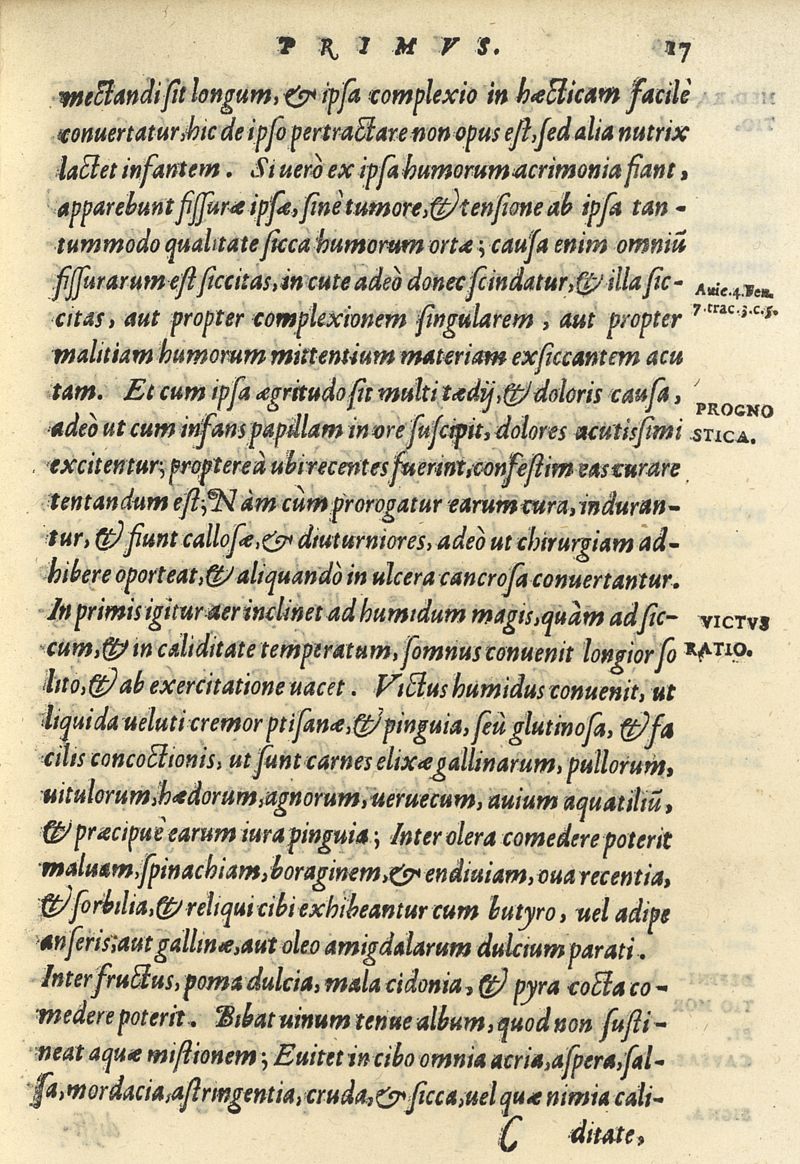 PRIMVS. 17
mectandi sit longum, & ipsa complexio in hæcticam facilè
conuertatur, hic de ipso pertractare non opus est, sed alia nutrix
lactet infantem. Si uerò ex ipsa humorum acrimonia fiant,
apparebunt fissuræ ipsæ, sinè tumore, & tensione ab ipsa tan-
tummodo qualitate sicca humorum ortæ; causa enim omniũ
fissurarum est siccitas, in cute adeò donec scindatur, & illa sic-
citas, aut propter complexionem singularem, aut propter
malitiam humorum mittentium materiam exsiccantem acu
tam. Et cum ipsa ægritudo sit multi tædij, & doloris causa,
adeò ut cum infans papillam in ore suscipit, dolores acutissimi
excitentur; proptereà ubi recentes fuerint, confestim eas curare
tentandum est; Nàm cùm prorogatur earum cura, induran-
tur, & fiunt callosæ, & diuturniores, adeò ut chirurgiam ad-
hibere oporteat, & aliquandò in ulcera cancrosa conuertantur.
In primis igitur aer inclinet ad humidum magis, quàm ad sic-
cum, & in caliditate temperatum, somnus conuenit longior so
lito, & ab exercitatione uacet. Victus humidus conuenit, ut
liquida ueluti cremor ptisanæ, & pinguia, seù glutinosa, & fa
cilis concoctionis, ut sunt carnes elixæ gallinarum, pullorum,
uitulorum, hædorum, agnorum, ueruecum, auium aquatiliũ,
& præcipuè earum iura pinguia; Inter olera comedere poterit
maluam, spinachiam, boraginem, & endiuiam, oua recentia,
& sorbilia, & reliqui cibi exhibeantur cum butyro, uel adipe
anseris, aut gallinæ, aut oleo amigdalarum dulcium parati.
Inter fructus, poma dulcia, mala cidonia, & pyra cocta co-
medere poterit. Bibat uinum tenue album, quod non susti-
neat aquæ mistionem; Euitet in cibo omnia acria, aspera, sal-
sa, mordacia, astringentia, cruda, & sicca, uel quæ nimia cali-
C ditate,
Auic. 4. Fen.
7. trac. 3. c. 5.
PROGNO
STICA.
VICTVS
RATIO.